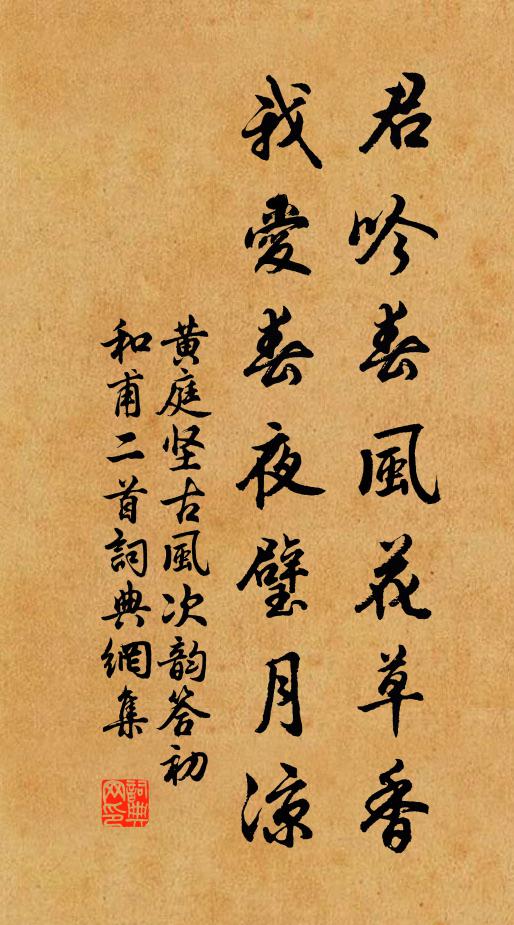 君吟春風花草香
我愛春夜璧月凉
黄庭坚古風次韵答初
和甫二首詞典網集
詞典
网印